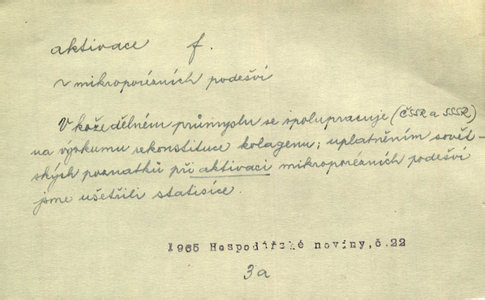 aktivace f.
~ mikroporésních podešví
V kožedělném průmyslu se spolupracuje (ČSSR a SSSR)
na výzkumu rekonstituce kolagenu; uplatněním sovět-
ských poznatků při aktivaci mikroporésních podešví
jsme ušetřili statisíce.
1965 Hospodářské noviny,č.22
3a